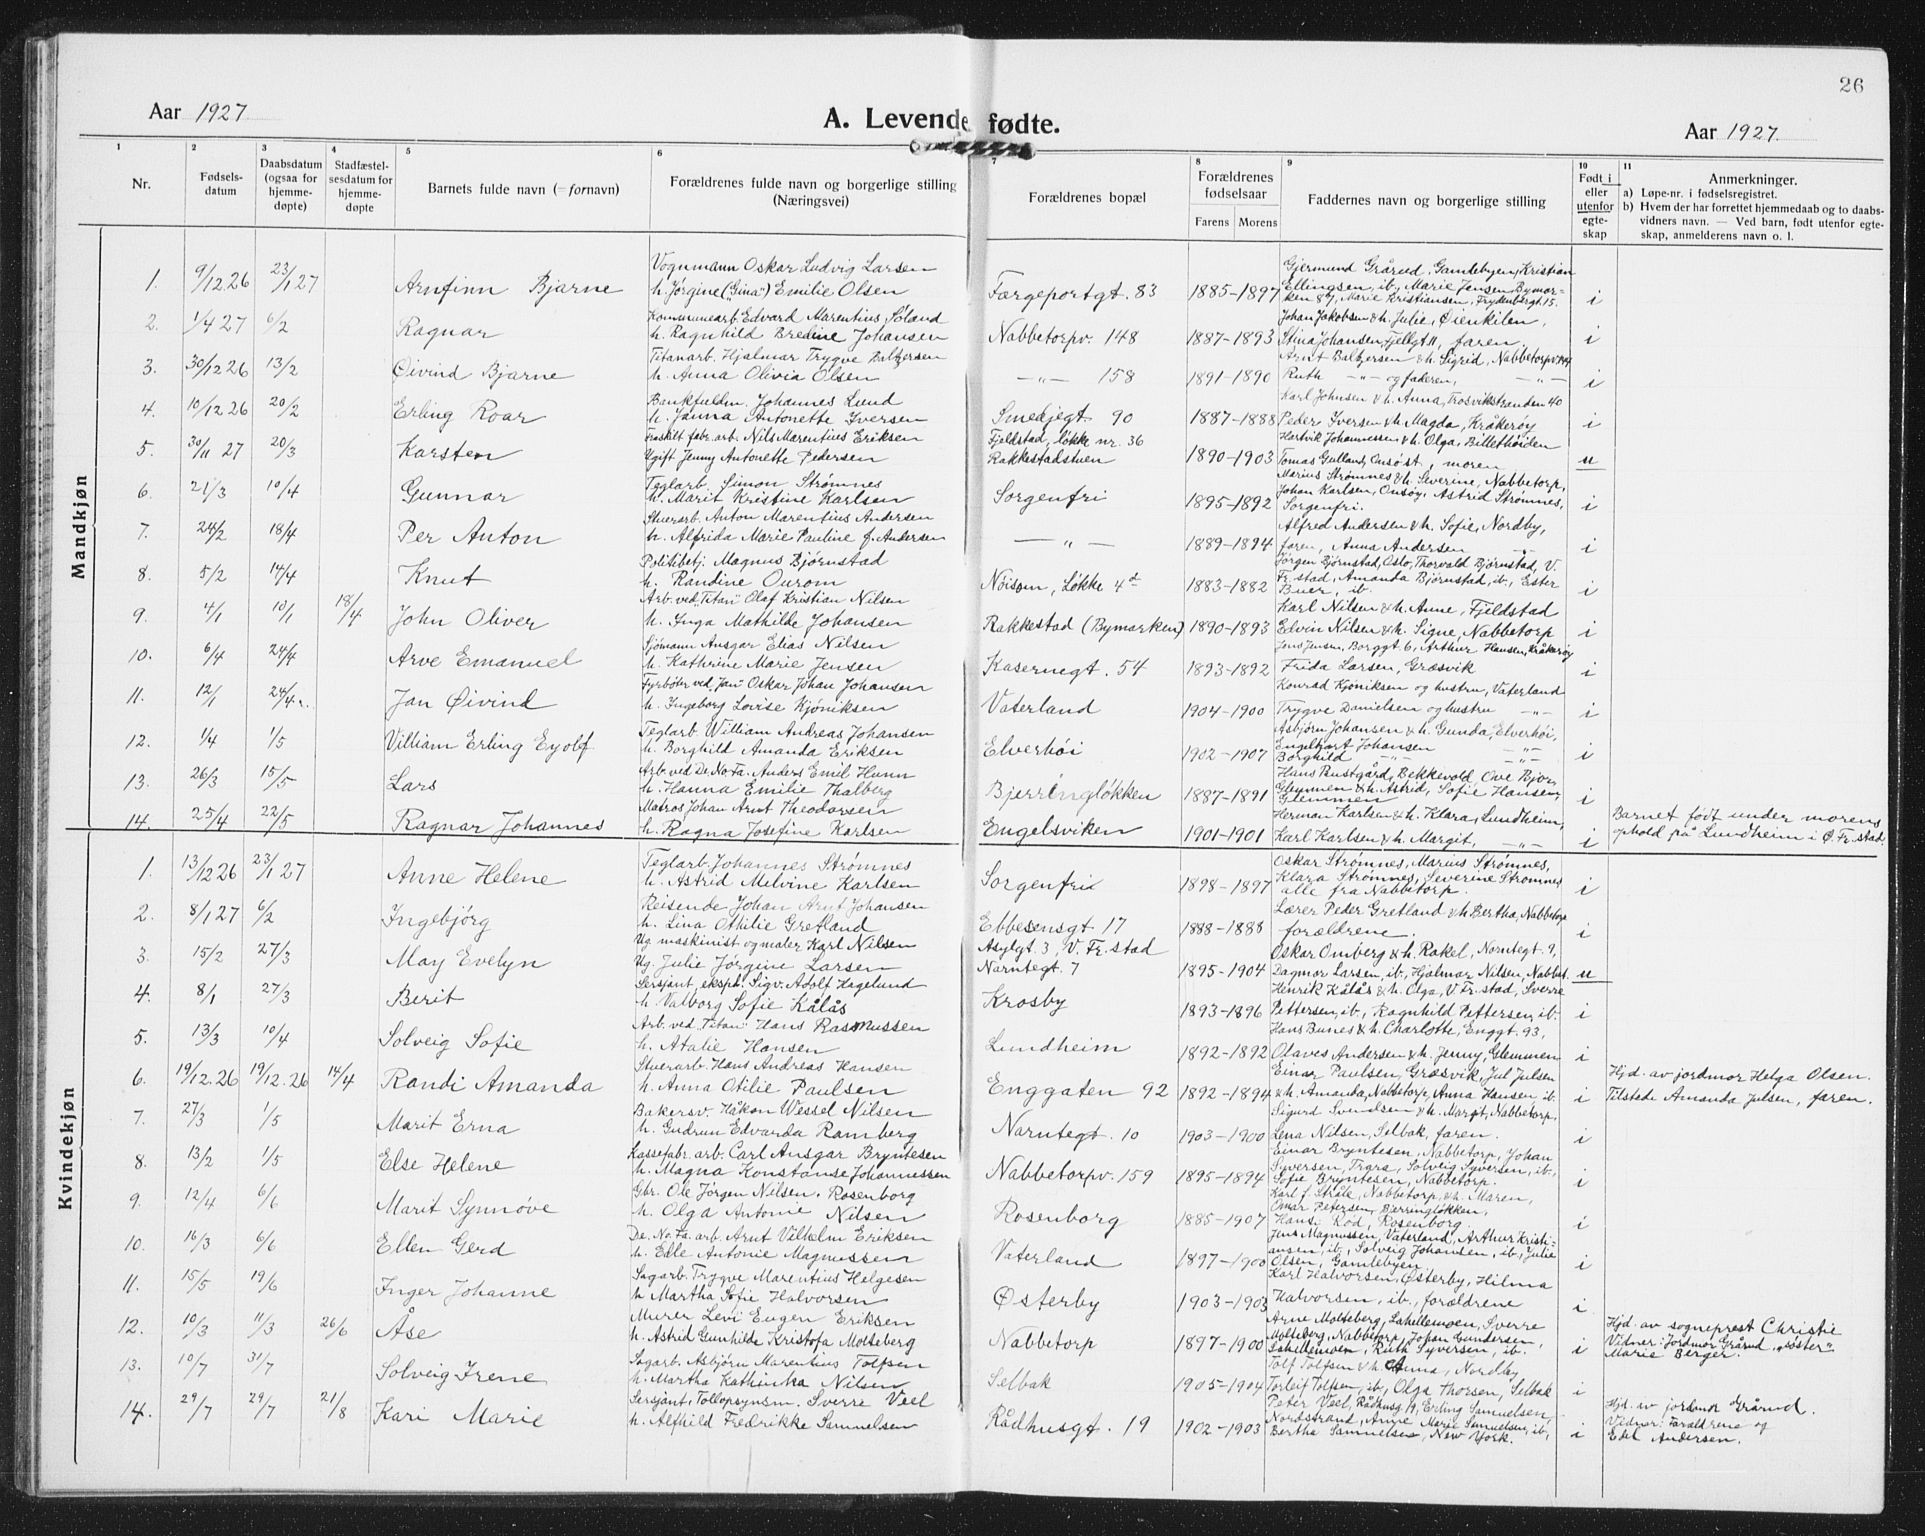 26
Aar 1927
A. Levende fødte.
Aar 1927.
1 2 3 4 5 6 7 8 9 10 11
Nr. Fødsels-datum Daabsdatum (ogsaa for hjemme-døpte) Stadfæstel-sesdatum for hjemme-døpte Barnets fulde navn (= fornavn) Forældrenes fulde navn og borgerlige stilling (Næringsvei) Forældrenes bopæl Forældrenes fødselsaar Farens Morens Faddernes navn og borgerlige stilling Født i eller utenfor egte-skap Anmerkninger.
a) Løpe-nr. i fødselsregistret.
b) Hvem der har forrettet hjemmedaab og to daabs-vidners navn. — Ved barn, født utenfor egte-skap, anmelderens navn o. l.
Mandkjøn
Vognmann Oskar Ludvig Larsen Gjermund Grårud, Gamlebyen, Kristian
1. 9/12 26 23/1 27 Arnfinn Bjarne h. Jörgine ("Gina") Emilie Olsen Færgeportgt. 83 1885-1897 Ellingsen, ib, Marie Jensen, Bymar-ken 87, Marie Kristiansen, Frydenbergt 15. i
Kommunearb. Edvard Marentius Söland Johan Jakobsen & h. Julie, Øienkilen,
2. 1/4 27 6/2 Ragnar h. Ragnhild Bredine Johansen Nabbetorpv. 148 1887-1893 Stina Johansen, Fjellgt 11, faren. i
Titanarb. Hjalmar Trygve Baltzersen Arnt Baltzersen & h. Sigrid, Nabbetorpv
3. 30/12 26 13/2 Øivind Bjarne h. Anna Olivia Olsen —„— 158 1891-1890 Ruth —„— og faderen, —„— i
Bankfuldm. Johannes Lund Karl Johnsen & h. Anna, Trosvikstranden 40
4. 10/12 26 20/2 Erling Roar h. Janna Antonette Iversen Smedjegt. 90 1887-1888 Peder Iversen & h. Magda, Kråkeröy i
Fraskilt fabr. arb. Nils Marentius Eriksen Fjeldstad, løkke nr. 36 Hartvik Johannessen & h. Olga, Billethöiden
5. 30/11 27 20/3 Karsten Ugift Jenny Antonette Pedersen Rakkestadstuen 1890-1903 Tomas Gulland, Onsöst, moren u
Teglarb. Simon Strømnes Marius Strømnes & h. Severine, Nabbetorp,
6. 21/3 10/4 Gunnar h. Marit Kristine Karlsen Sorgenfri 1895-1892 Johan Karlsen, Onsöy, Astrid Strømnes, Sorgenfri. i
Stuerarb. Anton Marentius Andersen Alfred Andersen & h. Sofie, Nordby,
7. 24/2 18/4 Per Anton h. Alfrida Marie Pauline f. Andersen —„— 1889-1894 faren, Anna Andersen —„— i
Politibetj. Magnus Bjørnstad Jörgen Bjørnstad, Oslo, Thorvald Bjørnstad, V.
8. 5/2 14/4 Knut h. Randine Ourom Nöisom, Løkke 4 1883-1882 Fr. stad, Amanda Bjørnstad, ib, Ester Buer, ib. i
Arb. ved "Titan" Olaf Kristian Nilsen Karl Nilsen & h. Anne, Fjeldstad
9. 4/1 10/1 18/4 John Oliver h. Inga Mathilde Johansen Rakkestad (Bymarken) 1890-1893 Edvin Nilsen & h. Signe, Nabbetorp i
Sjömann Ansgar Elias Nilsen Jens Jensen, Borggt. 6, Arthur Hansen, Kråkeröy
10. 6/4 24/4 Arve Emanuel h. Kathrine Marie Jensen Kasernegt. 54 1893-1892 Frida Larsen, Græsvik i
Fyrböter ved "Jan" Oskar Johan Johansen Konrad Kjöniksen og hustru, Vaterland
11. 12/1 24/4 Jan Øivind h. Ingeborg Lovise Kjöniksen Vaterland 1904-1900 Trygve Danielsen og hustru —„— i
Teglarb. William Andreas Johansen Asbjörn Johansen & h. Gunda, Elverhöi,
12. 1/4 1/5 Villiam Erling Eyolf h. Borghild Amanda Eriksen Elverhöi 1902-1907 Engelhart Johansen —„— Borghild —„— i
Arb. ved De No. Fa. Anders Emil Hunn Hans Rustgård, Bekkevold, Ove Bjor,
13. 26/3 15/5 Lars h. Hanna Emilie Thalberg Bjerringløkken 1887-1891 Glemmen & h. Astrid, Sofie Hansen, Glemmen i
Matros Johan Arnt Theodorsen Herman Karlsen & h. Klara, Lundheim, Barnet født under morens
14. 25/4 22/5 Ragnar Johannes h. Ragna Josefine Karlsen Engelsviken 1901-1901 Karl Karlsen & h. Margit, —„— i ophold på Lundheim i Ø. Fr. stad.
Kvindekjøn
Teglarb. Johannes Strømnes Oskar Strømnes, Marius Strømnes,
1. 13/12 26 23/1 27 Anne Helene h. Astrid Melvine Karlsen Sorgenfri 1898-1897 Klara Strømnes, Severine Strømnes alle fra Nabbetorp. i
Reisende Johan Arnt Johansen Lærer Peder Gretland & h Bertha, Nabbetorp
2. 8/1 27 6/2 Ingebjörg h. Lina Othilie Gretland Ebbesensgt 17 1888-1888 forældrene. i
Ug. maskinist og maler Karl Nilsen Asylgt. 3, V. Fr. stad Oskar Omberg & h. Rakel, Norntegt. 9,
3. 15/2 27/3 May Evelyn Ug. Julie Jörgine Larsen Narntegt. 7 1895-1904 Dagmar Larsen, ib, Hjalmar Nilsen, Nabbet. u
Sersjant, ekspd. Sigv. Adolf Hagelund Henrik Kålås & h. Olga, V. Fr. stad, Sverre
4. 8/1 27/3 Berit h. Valborg Sofie Kålås Krosby 1893-1896 Pettersen, ib, Ragnhild Pettersen, ib. i
Arb. ved "Titan" Hans Rasmussen Hans Bunes & h. Charlotte, Enggt. 93,
5. 13/3 10/4 Solveig Sofie h. Atalie Hansen Lundheim 1892-1892 Olaves Andersen & h. Jenny, Glemmen i
Stuerarb. Hans Andreas Hansen Einar Paulsen, Græsvik, Jul Julsen Hjd. av jordmor Helga Olsen.
6. 19/12 26 19/12 26 14/4 Randi Amanda h. Anna Otilie Paulsen Enggaten 92 1892-1894 & h. Amanda, Nabbetorp, Anna Hansen, ib. i Tilstede Amanda Julsen, faren.
Bakersv. Håkon Wessel Nilsen Sigurd Svendsen & h. Margit, Nabbetorp,
7. 27/3 1/5 Marit Erna h. Gudrun Edvarda Ramberg Narntegt. 10 1903-1900 Lena Nilsen, Selbak, faren. i
Kassefabr. arb. Carl Ansgar Bryntesen Einar Bryntesen, Nabbetorp, Johan
8. 13/2 1/5 Else Helene h. Magna Konstanse Johannessen Nabbetorpv. 159 1895-1894 Syversen, Trara, Solveig Syversen, ib., Sofie Bryntesen, Nabbetorp. i
Gbr. Ole Jörgen Nilsen, Rosenborg Karl f. Stråle, Nabbetorp, & h. Maren,
9. 12/4 6/6 Marit Synnøve h. Olga Antonie Nilsen Rosenborg 1885-1907 Omar Petersen, Bjerringløkken, Hansi Röd, Rosenborg i
De. No. Fa. arb. Arnt Vilhelm Eriksen Jens Magnussen, Vaterland, Arthur Kristi-
10. 16/3 6/6 Ellen Gerd h. Elle Antonie Magnussen Vaterland 1897-1900 ansen, ib., Solveig Johansen, ib, Julie Olsen, Gamlebyen i
Sagarb. Trygve Marentius Helgesen Karl Halvorsen, Østerby, Hilma
11. 15/5 19/6 Inger Johanne h Martha Sofie Halvorsen Østerby 1903-1903 Halvorsen, ib., forældrene i
Murer Levi Eugen Eriksen Arne Molteberg, Lahellemoen, Sverre Hjd. av sogneprest Christie
12. 10/3 11/3 26/6 Åse h. Astrid Gunhilde Kristofa Molteberg Nabbetorp 1897-1900 Molteberg, Nabbetorp, Johan Gundersen, Lahellemoen, Ruth Syversen, ib. i Vidner: Jordmor Grårud, "söster" Marie Berger.
Sagarb. Asbjörn Marentius Tolfsen Tolf Tolfsen & h. Anna, Nordby
13. 10/7 31/7 Solveig Irene h. Martha Kathinka Nilsen Selbak 1905-1904 Torleif Tolfsen, ib, Olga Thorsen, Selbak i
Sersjant, Tollopsynsm. Sverre Veel Peter Veel, Rådhusg. 19, Erling Samuelsen, Hjd. av jordmor Grårud.
14. 29/7 29/7 21/8 Kari Marie h. Alfhild Fredrikke Samuelsen Rådhusgt. 19 1902-1903 Nordstrand, Anne Marie Samuelsen, ib, Bertha Samuelsen, New York. i Vidner: Forældrene og Edel Andersen.